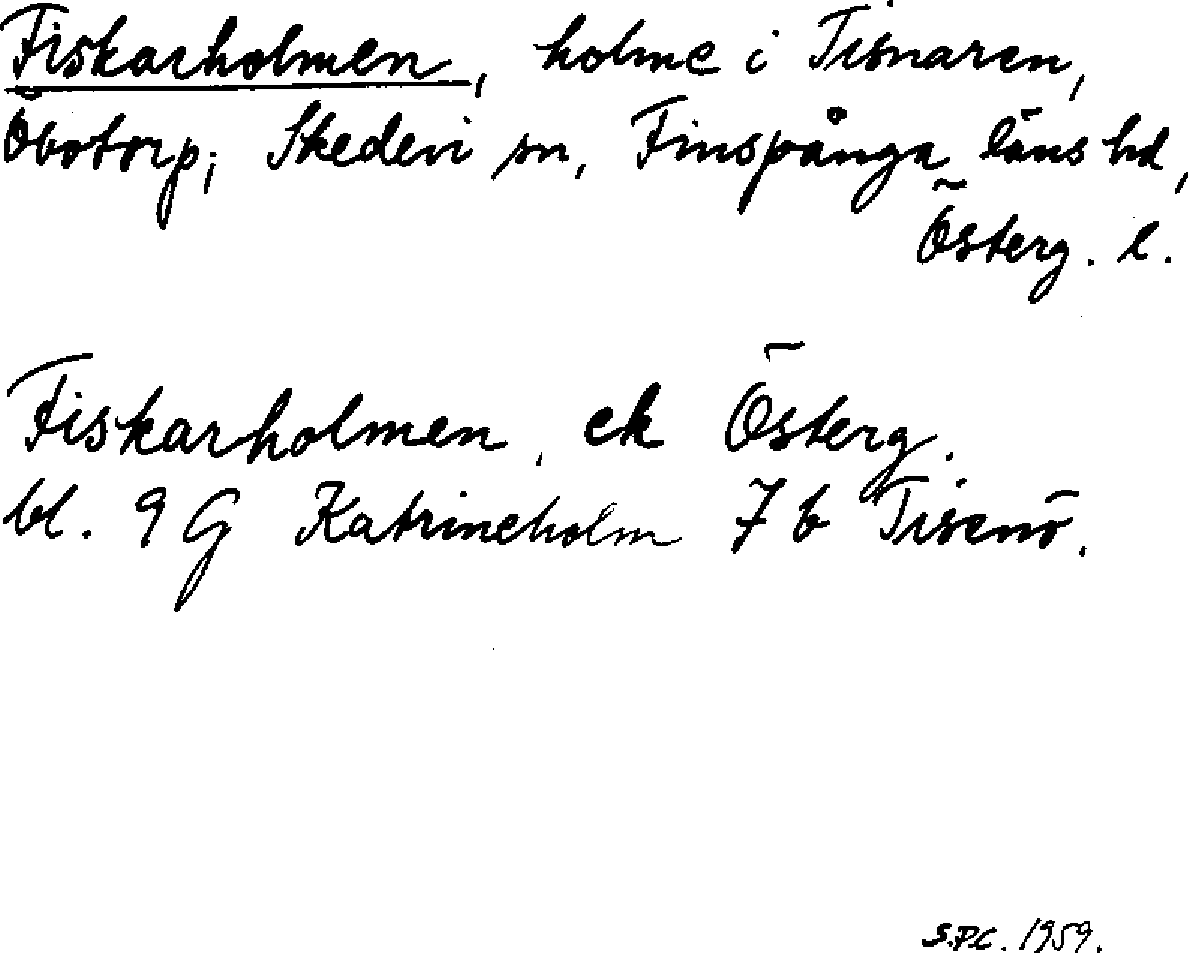 Fiskarholmen, holme i Tisnaren,
Öbotorp, Skedevi sn, Finspånga läns hd,
Österg. l.
Fiskarholmen, ek Österg.
bl. 9 G Katrineholm 7 b Tisenö.
S.P.C. 1959.